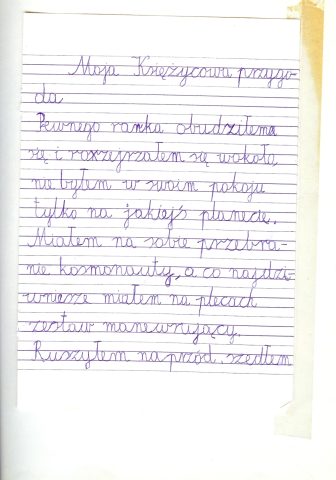 Moja Księżycowa przygo-
da
Pewnego ranka obudziłema
się i rozzejrzałem się wokoła
nie byłem w swoim pokoju
tylko na jakiejś planecie.
Miałem na sobie przebra-
nie kosmonauty, a co najdzi-
wniesze miałem na plecach
zestaw manewrujący.
Ruszyłem na przód. szedłem